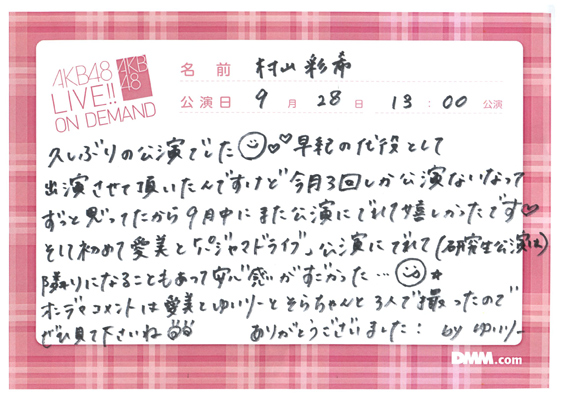 AKB48
LIVE!!
ON DEMAND
AKB
48
名前 村山彩希
公演日 9月28日 13:00公演
久しぶりの公演でした 早紀の代役として
出演させて頂いたんですけど今月3回しか公演ないなって
ずっと思ってたから9月中にまた公演にでれて嬉しかったです
そして初めて愛美と「パジャマドライブ」公演にでれて(研究生公演は)
隣りになることもあって安心感がすごかった…
オンデマコメントは愛美とゆいりーとそらちゃんと3人で撮ったので
ぜひ見て下さいね ありがとうございました! by ゆいりー
DMM.com